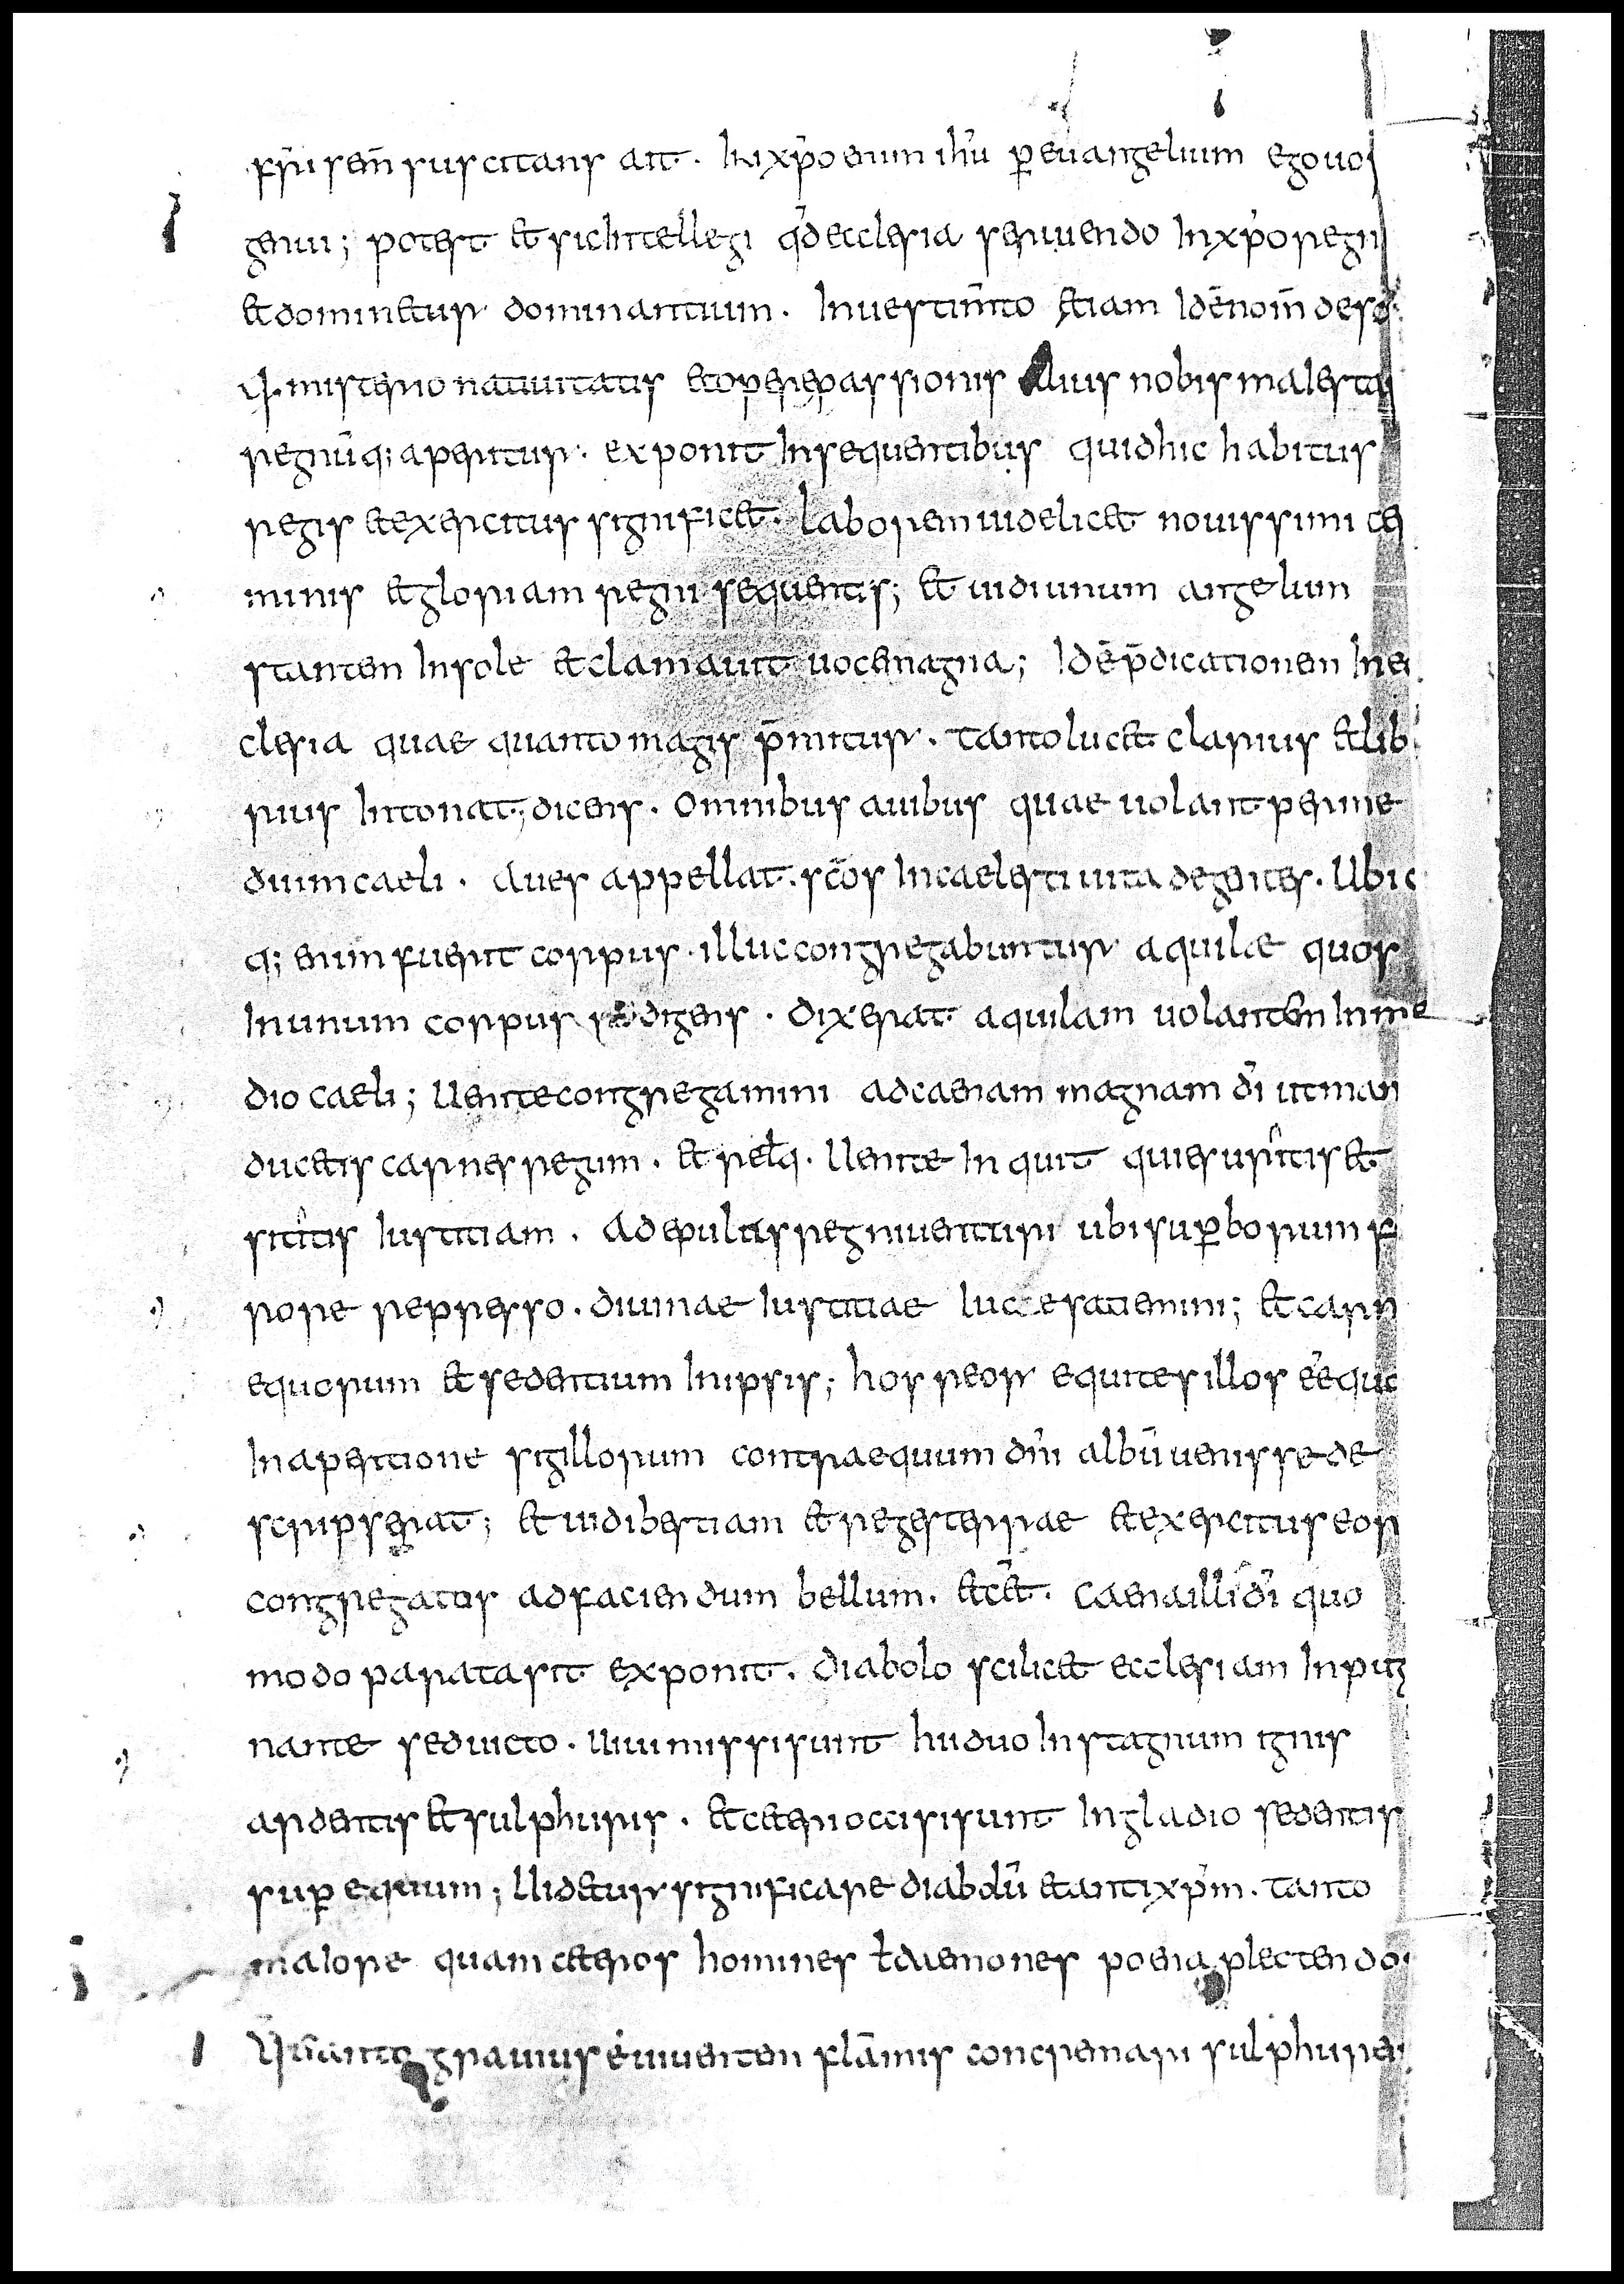 frīi semen suscitans ait. In xp̄o enim ih̄u p̄ euangelium ego uos
genui; potest et sic intellegi qd̄ ecclesia seruiendo in xp̄o regn
et dominetur dominantium. In uestim̄to etiam idē nom̄ desc
q. misterio natiuitatis et opere passionis eius nobis maiestas
regnūq; aperitur. exponit in sequentibus quid hic habitus
regis et exercitus significet. Laborem uidelicet nouissimi cer
minis et gloriam regni sequentis; et uidi unum angelum
stantem in sole et clamauit uoce magna; Idē p̄dicationem in ec
clesia quae quanto magis p̄mitur. tanto lucet clarius et lib
rius intonat; dicens. omnibus auibus quae uolant per me
dium caeli. Aues appellat. sc̄os in caelesti uita degentes. Ubi c
q; enim fuerit corpus. illuc congregabuntur aquilae quos
in unum corpus redigens. dixerat aquilam uolantem in me
dio caeli; Uenite congregamini ad caenam magnam dī ut man
ducetis carnes regum. et relq. Uenite inquit qui esuritis et
sititis iustitiam. Ad epulas regni uenturi ubi sup̄borum fu
rore represso. diuinae iustitiae luce satiemini; et carn
equorum et sedentium in ipsis; hos reor equites illos eē quo
in apertione sigillorum contra equum dn̄i albū uenisse de
scripserat; et uidi bestiam et reges terrae et exercitus eor
congregatos ad faciendum bellum. et cet. caena illi dī quo
modo parata sit exponit. diabolo scilicet ecclesiam inpug
nante sed uicto. Uiui missi sunt hii duo in stagnum ignis
ardentis et sulphuris. et ceteri occisi sunt in gladio sedentis
sup̄ equum; Uidetur significare diabolū et antixp̄m. tanto
maiore quam ceteros homines ł daemones poena plectendos
Quanto grauius ē uiuentem flāmis concremari sulphure